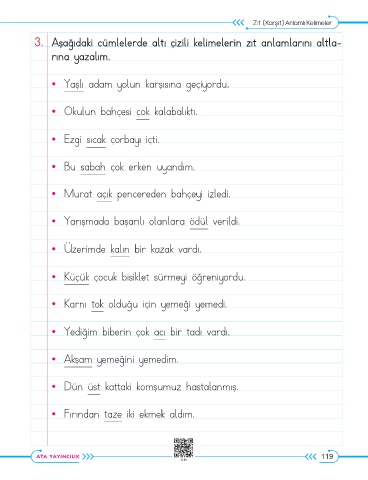 Zıt (Karşıt) Anlamlı Kelimeler
3. Aşağıdaki cümlelerde altı çizili kelimelerin zıt anlamlarını altla-
rına yazalım.
• Yaşlı adam yolun karşısına geçiyordu.
• Okulun bahçesi çok kalabalıktı.
• Ezgi sıcak çorbayı içti.
• Bu sabah çok erken uyandım.
• Murat açık pencereden bahçeyi izledi.
• Yarışmada başarılı olanlara ödül verildi.
• Üzerimde kalın bir kazak vardı.
• Küçük çocuk bisiklet sürmeyi öğreniyordu.
• Karnı tok olduğu için yemeği yemedi.
• Yediğim biberin çok acı bir tadı vardı.
• Akşam yemeğini yemedim.
• Dün üst kattaki komşumuz hastalanmış.
• Fırından taze iki ekmek aldım.
ATA YAYINCILIK
119